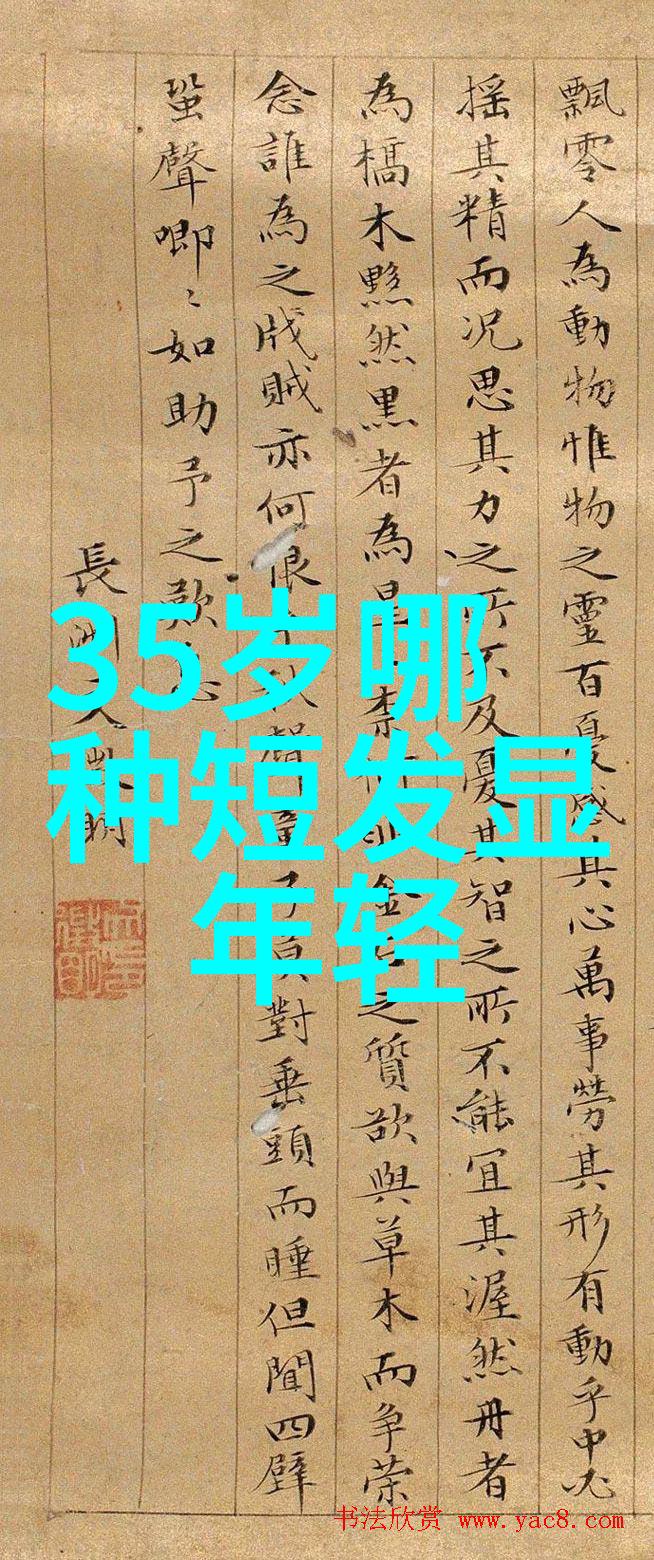 35岁哪
种短发显
年轻
飄零人為動物惟物之靈百憂感其心萬事勞其形有動乎中必
搖其精而況思其力之所不及憂其智之所不能宜其渥然丹者
為槁木黟然黑者為金之質欲與草木而爭榮
念誰為之戕賊亦何恨聲童子莫對垂頭而睡但聞四壁
蛩聲唧〻如助予之歎
長洲文明
书法欣赏 www.yac8.com